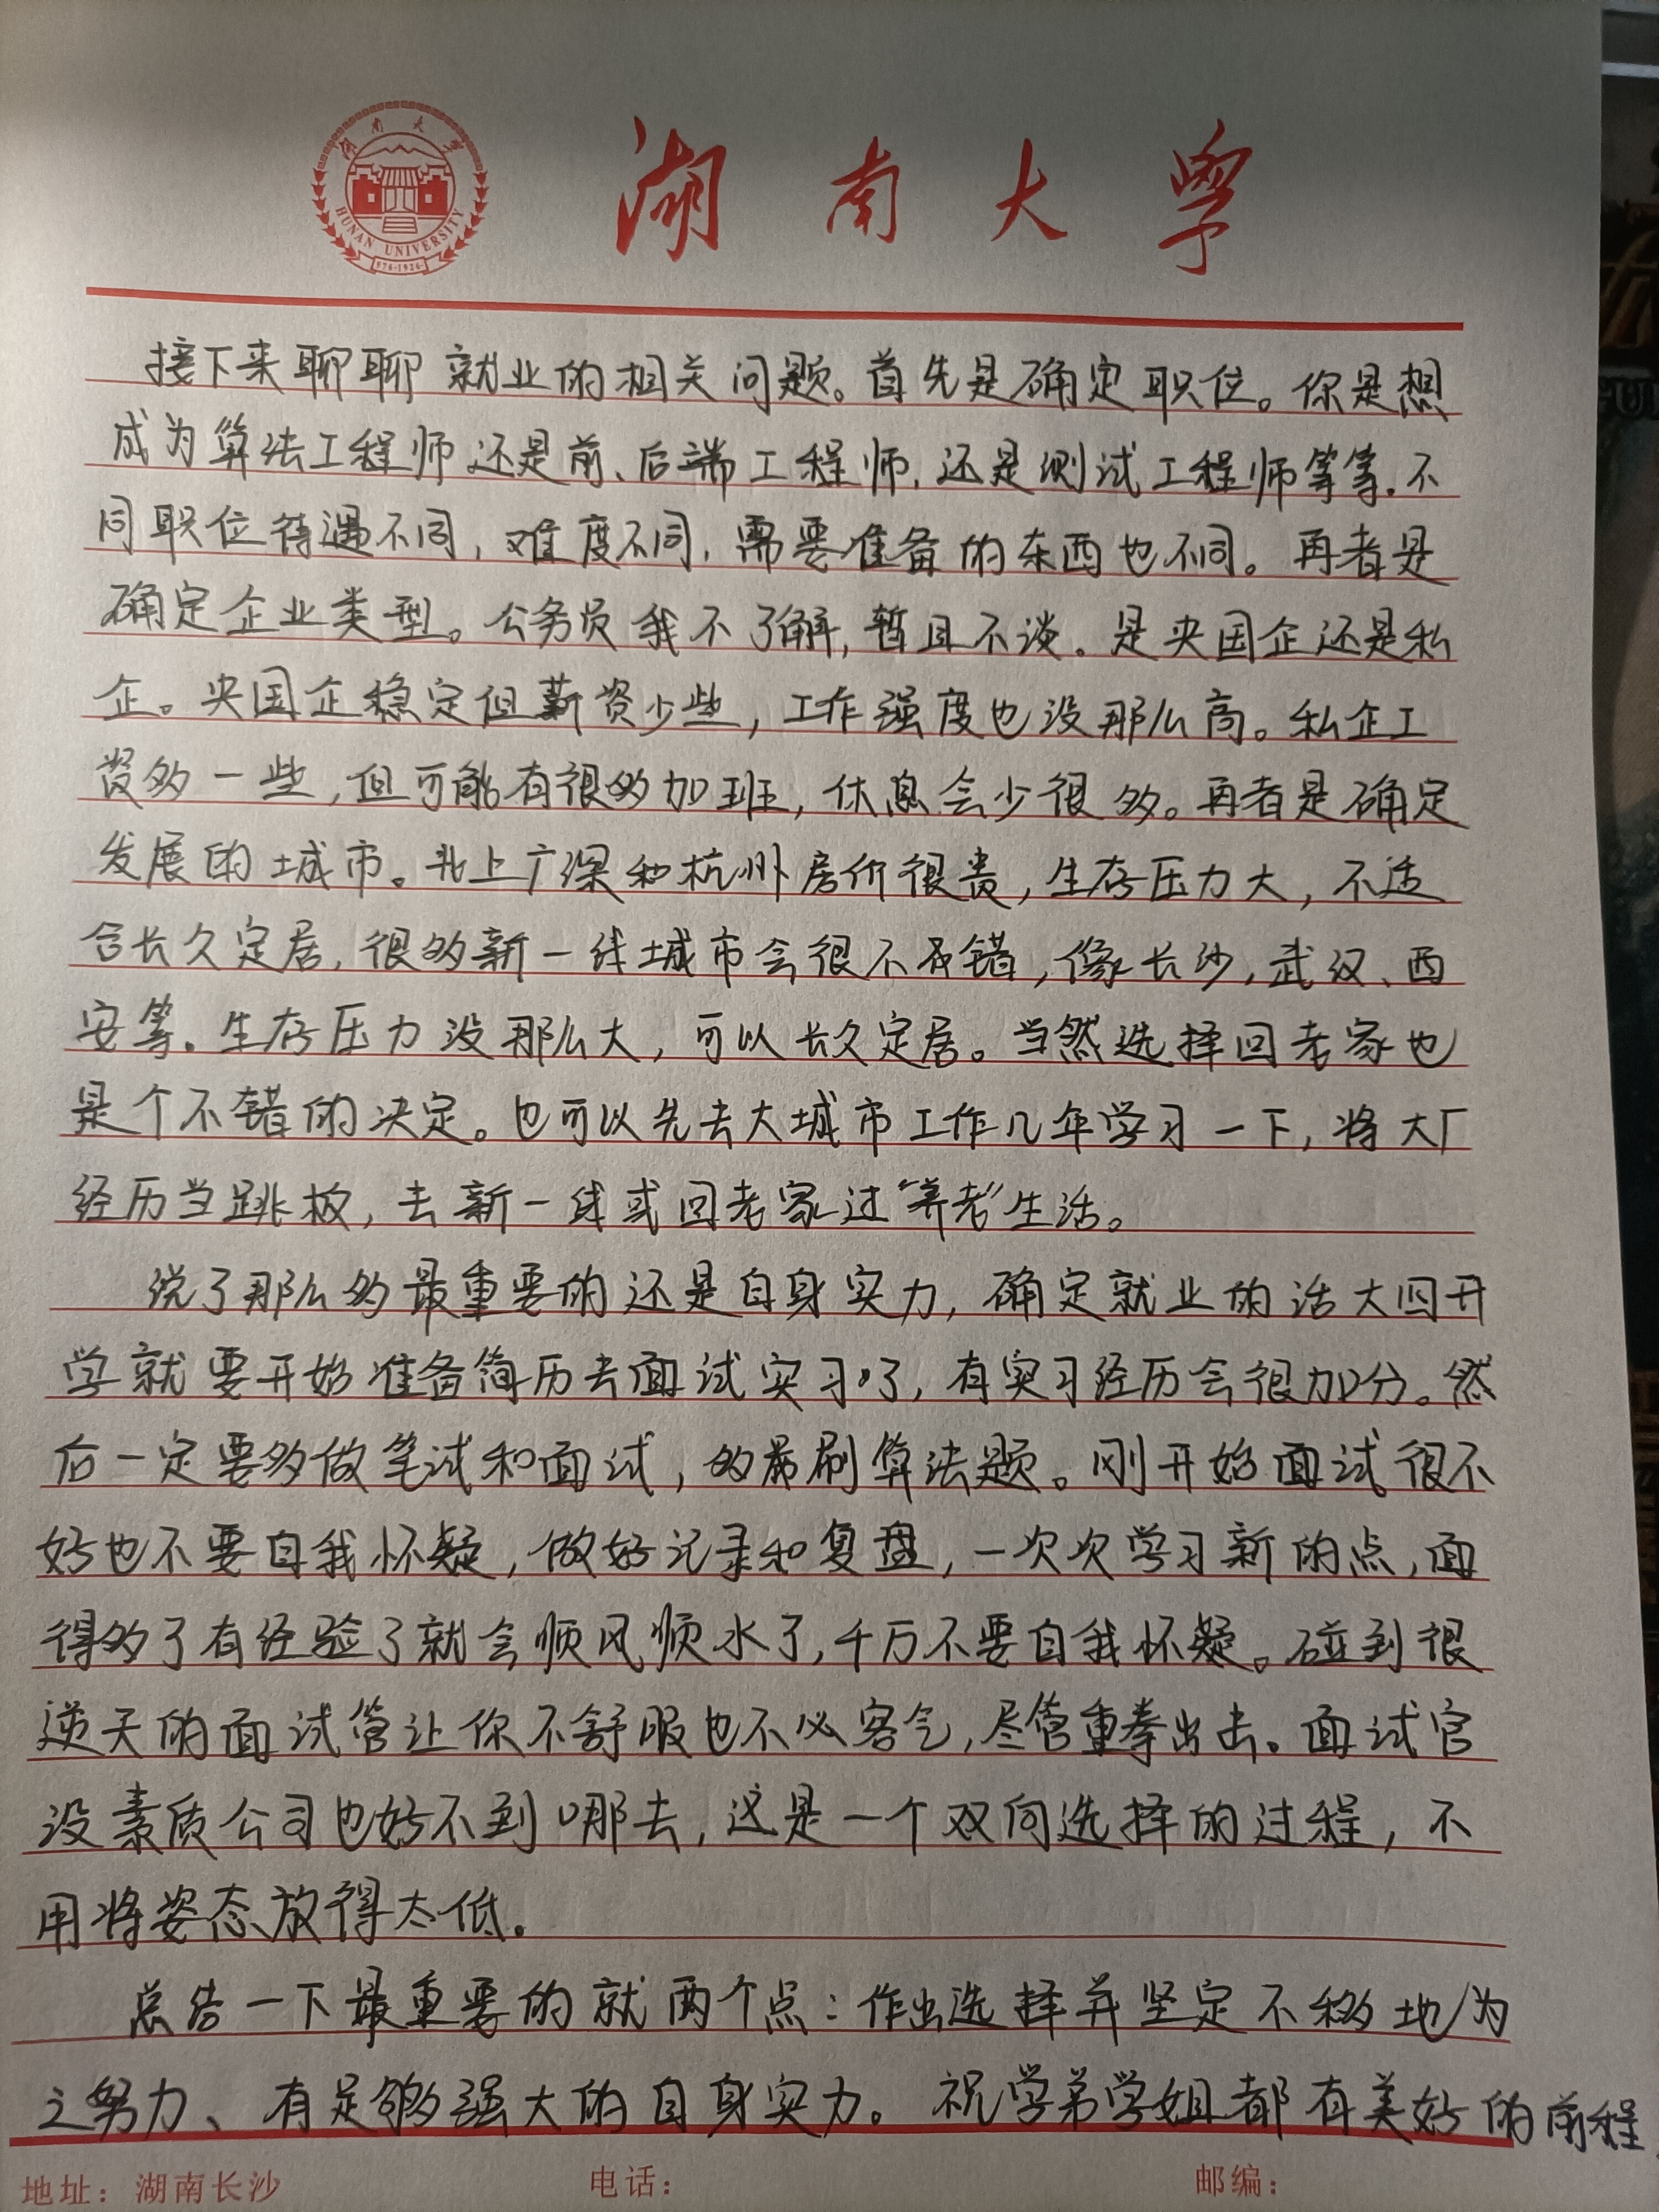 湖南大学
HUNAN UNIVERSITY
976-1926
湖南大学
接下来聊聊就业的相关问题。首先是确定职位。你是想
成为算法工程师还是前、后端工程师,还是测试工程师等等.不
同职位待遇不同,难度不同,需要准备的东西也不同。再者是
确定企业类型。公务员我不了解,暂且不谈。是央国企还是私
企。央国企稳定但薪资少些,工作强度也没那么高。私企工
资多一些,但可能有很多加班,休息会少很多。再者是确定
发展的城市。北上广深和杭州房价很贵,生存压力大,不适
合长久定居,很多新一线城市会很不错,像长沙,武汉、西
安等.生存压力没那么大,可以长久定居。当然选择回老家也
是个不错的决定。也可以先去大城市工作几年学习一下,将大厂
经历当跳板,去新一线或回老家过“养老”生活。
说了那么多最重要的还是自身实力,确定就业的话大四开
学就要开始准备简历去面试实习了,有实习经历会很加分。然
后一定要多做笔试和面试,多刷算法题。刚开始面试很不
好也不要自我怀疑,做好记录和复盘,一次次学习新的点,面
得多了有经验了就会顺风顺水了,千万不要自我怀疑。碰到很
逆天的面试管让你不舒服也不必客气,尽管重拳出击。面试官
没素质公司也好不到哪去,这是一个双向选择的过程,不
用将姿态放得太低.
总结一下最重要的就两个点:作出选择并坚定不移地为
之努力、有足够强大的自身实力。祝学弟学姐都有美好的前程
地址:湖南长沙 电话: 邮编: